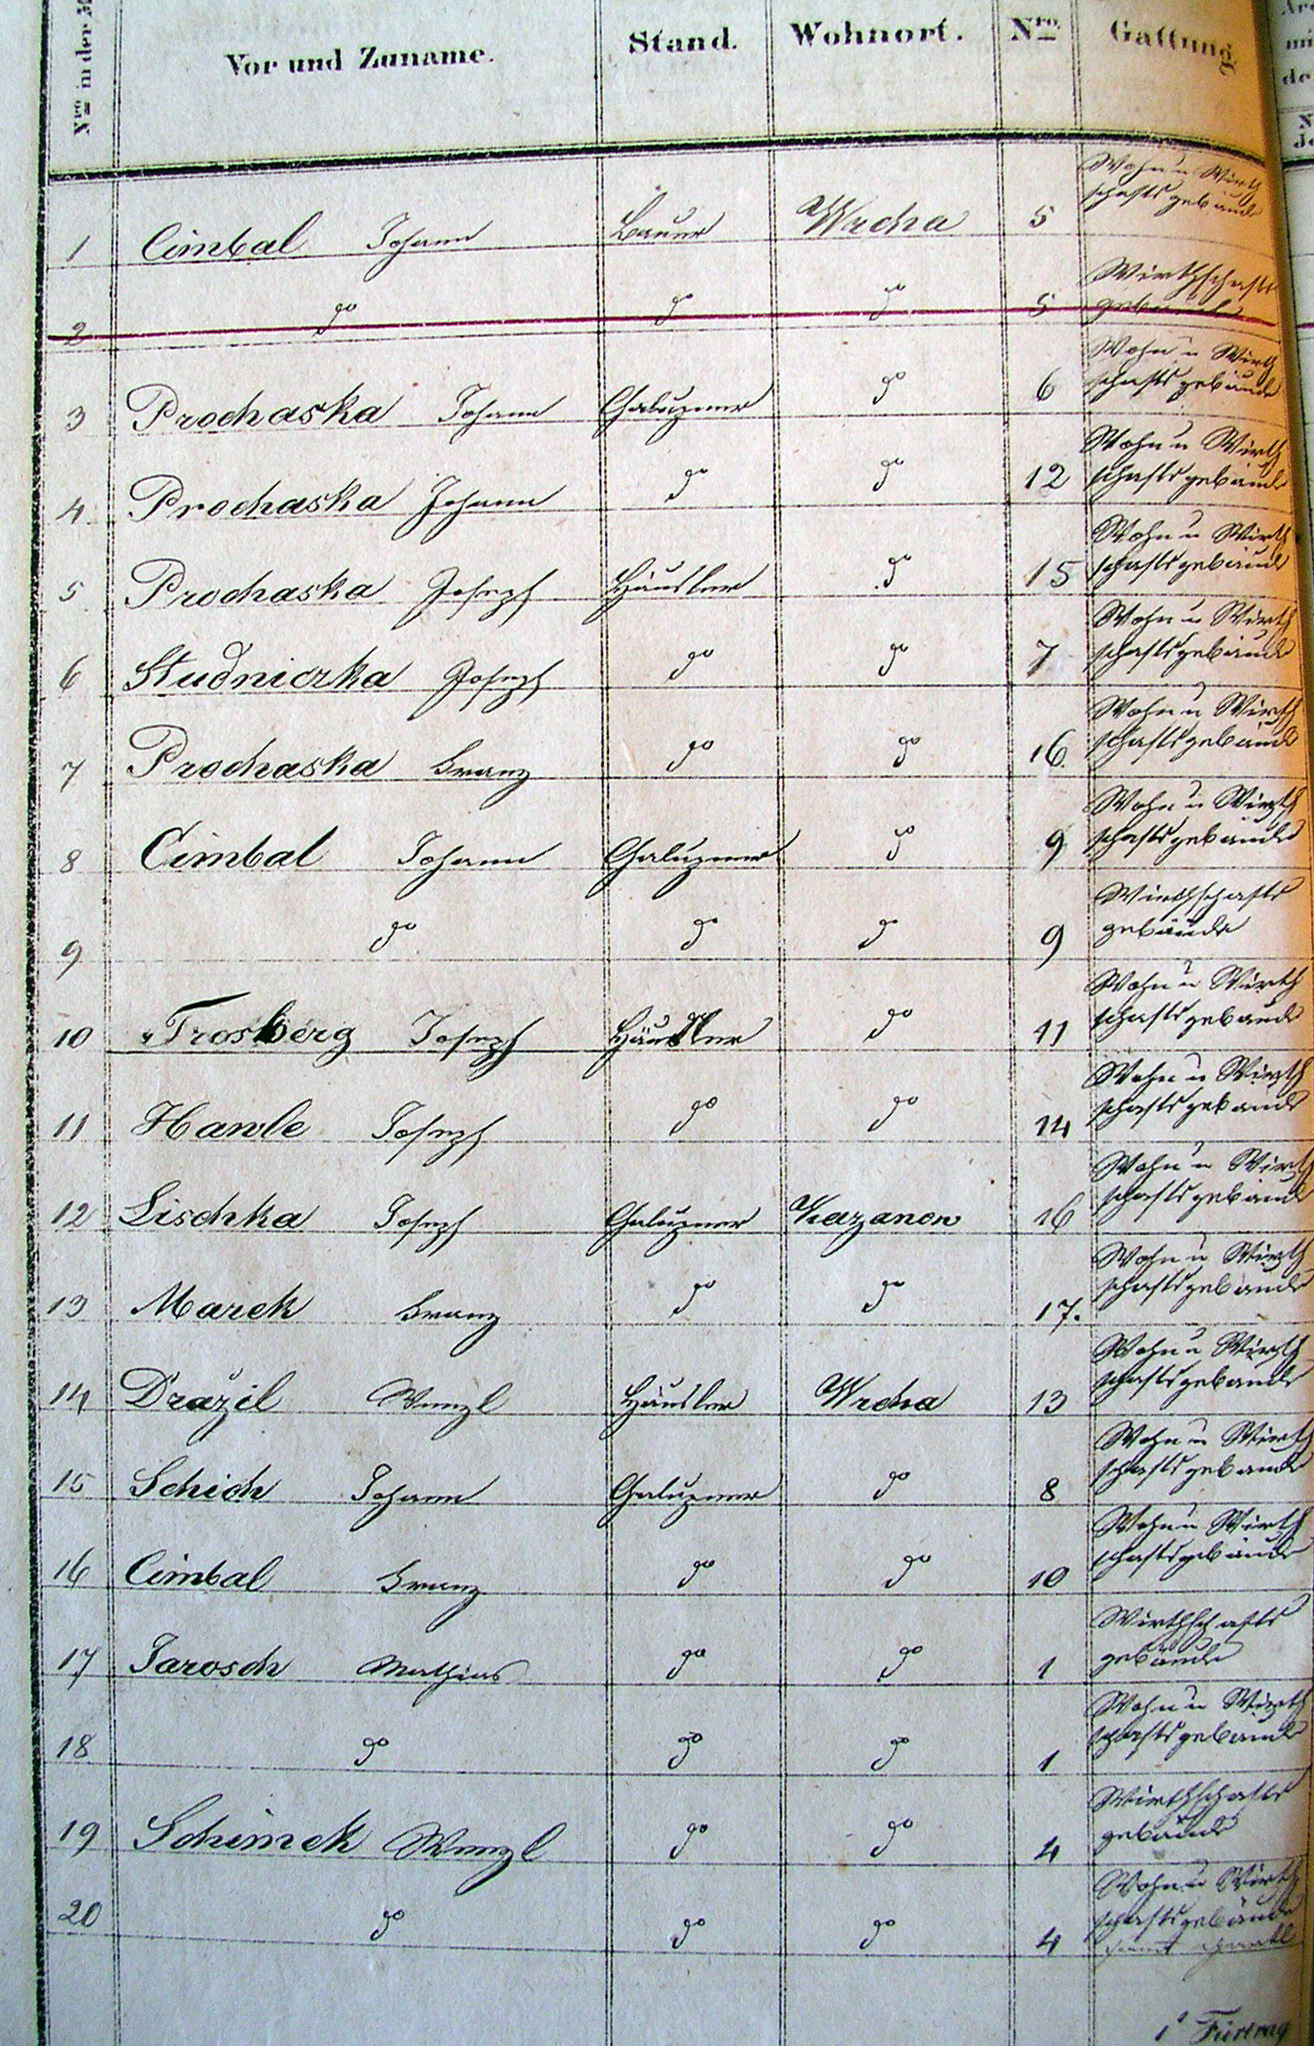 Nro in der M
Vor und Zuname.
Stand.
Wohnort.
Nro
Gattung
1 Cimbal Johann Bauer Wrcha 5 Wohn u Wirth
schaftsgebäude
2 do do do 5 Wirthschafts
gebäude
3 Prochaska Johann Chalupner do 6 Wohn u Wirth
schaftsgebäude
4 Prochaska Johann do do 12 Wohn u Wirth
schaftsgebäude
5 Prochaska Joseph Häusler do 15 Wohn u Wirth
schaftsgebäude
6 Studniczka Joseph do do 7 Wohn u Wirth
schaftsgebäude
7 Prochaska Franz do do 16. Wohn u Wirth
schaftsgebäude
8 Cimbal Johann Chalupner do 9 Wohn u Wirth
schaftsgebäude
9 do do do 9 Wirthschafts
gebäude
10 Trosberg Joseph Häusler do 11 Wohn u Wirth
schaftsgebäude
11 Hawle Joseph do do 14 Wohn u Wirth
schaftsgebäude
12 Lischka Joseph Chalupner Kazanow 16 Wohn u Wirth
schaftsgebäude
13 Marek Franz do do 17. Wohn u Wirth
schaftsgebäude
14 Dražil Wenzl Häusler Wrcha 13 Wohn u Wirth
schaftsgebäude
15 Schich Johann Chalupner do 8 Wohn u Wirth
schaftsgebäude
16 Cimbal Franz do do 10 Wohn u Wirth
schaftsgebäude
17 Jarosch Mathias do do 1 Wirthschafts
gebäude
18 do do do 1 Wohn u Wirth
schaftsgebäude
19 Schimek Wenzl do do 4 Wirthschafts
gebäude
20 do do do 4 Wohn u Wirth
schaftsgebäude
Fürtrag